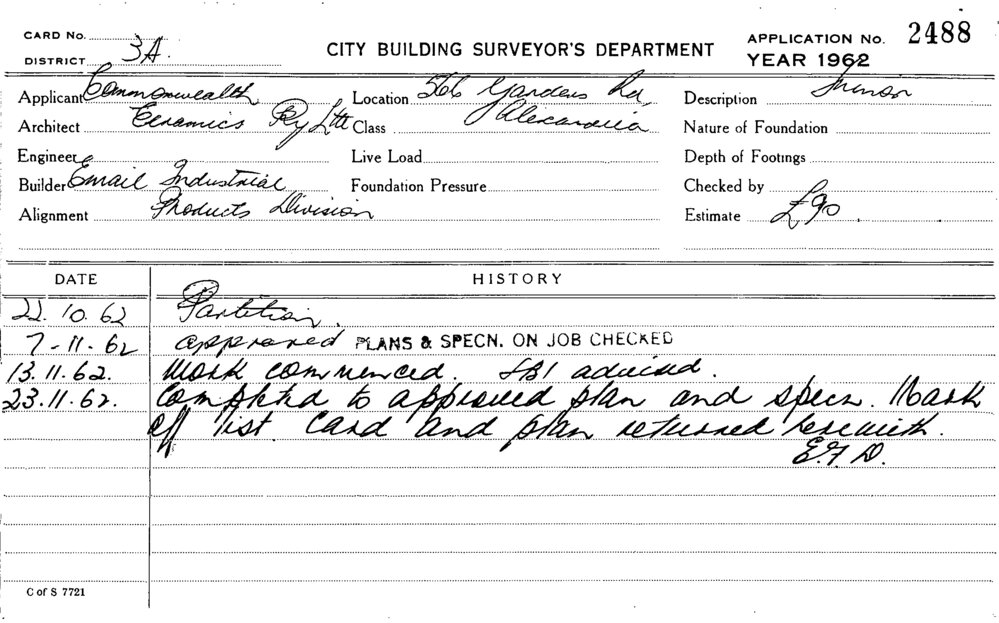 CARD No.
DISTRICT 3A.
CITY BUILDING SURVEYOR'S DEPARTMENT
APPLICATION No. 2488
YEAR 1962
Applicant Commonwealth
Location 566 Gardens Rd,
Description Minor
Architect Ceramics Pty Ltd
Class Alexandria
Nature of Foundation
Engineer
Live Load
Depth of Footings
Builder Email Industrial
Foundation Pressure
Checked by
Alignment Products Division
Estimate £90
DATE HISTORY
22.10.62 Partition.
7-11-62 approved PLANS & SPECN. ON JOB CHECKED
13.11.62. Work commenced. advised.
23.11.62. Completed to approved plan and specn. Mark
off list. Card and plan returned herewith.
E.F.D.
C of S 7721